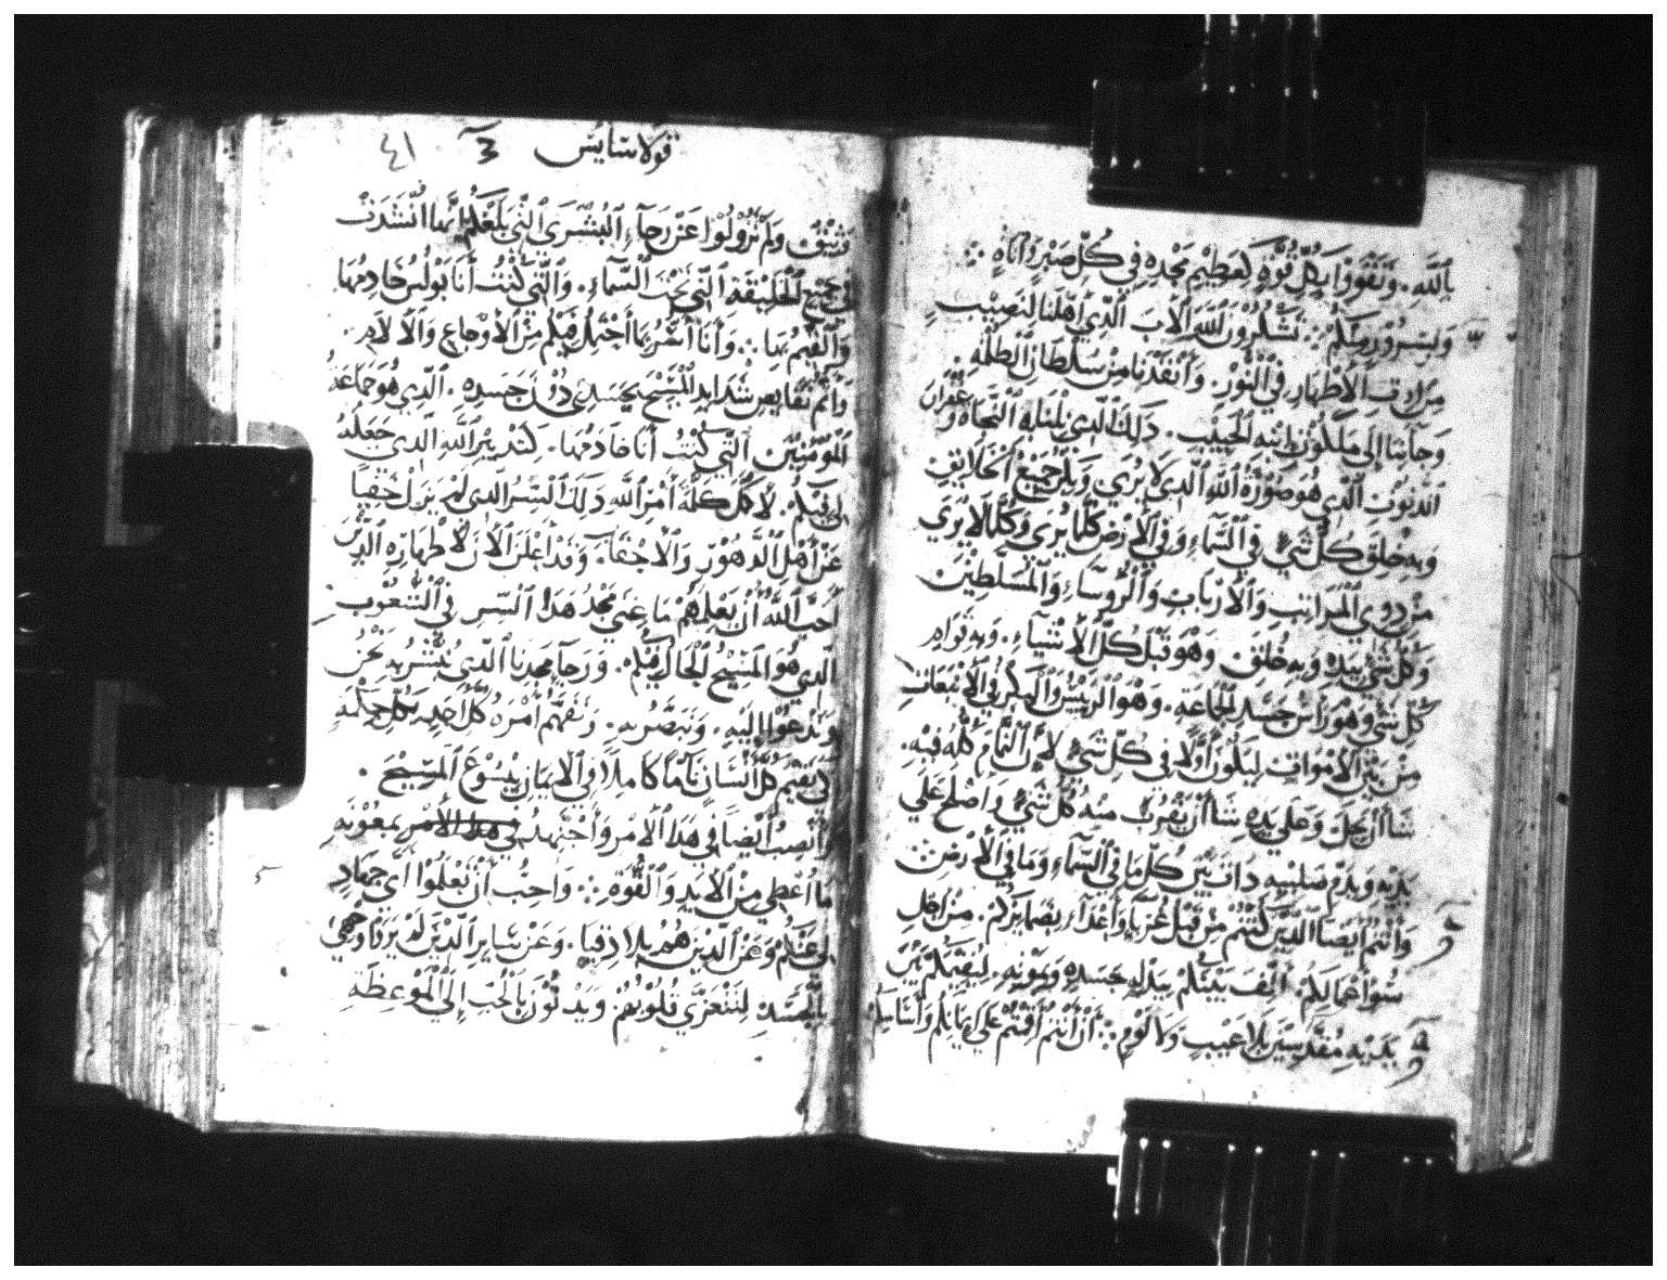 بِاللَّهِ. وَتَقْوَوْا بِكُلِّ قُوَّةٍ كَعَظِيْمِ مَجْدِهِ فِي كُلِّ صَبْرٍ وَأَنَاهٍ ؞
وَبِسُرُورٍ مِنكُمْ ؞ تَشْكُرُوْنَ لِلَّهِ الْآبِ الَّذِي أَهَّلَنَا لِنَصِيْبِ
مِيْرَاثِ الْأَطْهَارِ فِي النُّوْرِ. وَأَنْقَذَنَا مِنْ سُلْطَانِ الظُّلْمَهِ.
وَجَآبِنَا إِلَى مَلَكُوْتِ ابْنِهِ الْحَبِيْبِ. ذَلِكَ الَّذِي نِلْنَا بِهِ النَّجَاهَ وَغُفْرَانَ
الذُّنُوْبِ الَّذِي هُوَ صُوْرَةُ اللَّهِ الَّذِي لَا يُرَى وَبِكْرُ جَمِيْعِ الْخَلَايِقِ
وَبِهِ خُلِقَ كُلُّ شَيْءٍ فِي السَّمَاءِ وَفِي الْأَرْضِ كُلَّمَا يُرَى وَكُلَّمَا لَا يُرَى
مِنْ ذَوِي الْمَرَاتِبِ وَالْأَرْبَابِ وَالرُّوسَاءِ وَالْمُسَلَّطِيْنَ
وَكُلُّ شَيْءٍ بِيَدِهِ وَبِهِ خُلِقَ. وَهُوَ قَبْلَ كُلِّ الْأَشْيَآءِ. وَبِهِ قَوَامِ
كُلِّ شَيْءٍ وَهُوَ رَاسُ جَسَدِ الْجَمَاعَةِ. وَهُوَ الرَّيْسُ وَالْبِكْرُ فِي الْأَنْبِعَاثِ
مِنْ بَيْنِ الْأَمْوَاتِ لِيَكُوْنَ أَوَّلًا فِي كُلِّ شَيْءٍ لِأَنَّ التَّمَامَ كُلُّهُ فِيْهِ.
شَآ أَنْ يَحِلَّ وَعَلَى يَدِهِ شَآ أَنْ يَقْرُبَ مِنْهُ كُلُّ شَيْءٍ وَأَصْلَحَ عَلَى
يَدَيْهِ وَبِدَمِ صَلِيْبِهِ ذَاتَ بَيْنِ كُلِّ مَا فِي السَّمَآءِ وَمَا فِي الْأَرْضِ
وَأَنْتُمْ أَيْضًا الَّذِيْنَ كُنْتُمْ مِنْ قَبْلُ غُرَبَآءَ وَأَعْدَآءَ بِضَمَايِرِكُمْ. مِنْ اجْلِ
سُوْ أَعْمَالِكُمْ. أَلَّفَ بَيْنَكُمْ بِبَذْلِهِ جَسَدِهِ وَبِمَوْتِهِ. لِيُقِيْمَكُمْ بَيْنَ
يَدَيْهِ مُقَدَّسِيْنَ بِلَا عَيْبٍ وَلَا لَوْمٍ ؞ أَنْ أَنْتُمْ أَقَمْتُمْ عَلَى إِيْمَانِكُمْ وَأَسَاسِكُمْ
قولاسايس 3 ٤١
وَثِيْقٌ وَلَمْ تَزُوْلُوْا عَنْ رَجَآءِ الْبُشْرَى الَّتِي بَلَغَكُمْ إِنَّمَا انْتَشَرَتْ
فِي جَمِيْعِ الْخَلِيْقَةِ الَّتِي تَحْتَ السَّمَآءِ. وَالَّتِي كُنْتُ أَنَا بَوْلُسُ خَادِمُهَا
وَالْقَيِّمُ بِهَا ؞ وَأَنَا أُسَرُّ بِمَا أَحْتَمِلُ فِيْكُمْ مِنَ الْأَوْجَاعِ وَالْآلَامِ.
وَأُتِمُّ نَقَايِصَ شَدَايِدِ الْمَسِيْحِ بِجَسَدِي دُوْنَ جَسَدِهِ. الَّذِي هُوَ جَمَاعَةُ
الْمُوْمِنِيْنَ الَّتِي كُنْتُ أَنَا خَادِمُهَا. كَتَدْبِيْرِ اللَّهِ الَّذِي جَعَلَهُ
لِي فِيْكُمْ. لِأُكَمِّلَ كَلِمَةَ أَمْرِ اللَّهِ ذَلِكَ السِّرُّ الَّذِي لَمْ يَزَلْ خَفِيًا
عَنْ أَهْلِ الدُّهُوْرِ وَالْأَحْقَابِ وَقَدْ أُعْلِنَ الْآنَ لِأَطْهَارِهِ الَّذِيْنَ
أَحَبَّ اللَّهُ أَنْ يُعْلِمَهُمْ مَا غِنَى مَجْدِ هَذَا السِّرِ فِي الشُّعُوْبِ
الَّذِي هُوَ الْمَسِيْحُ الْحَالُّ فِيْكُمْ. وَرَجَآ مَجْدِنَا الَّذِي نُبَشِّرُ بِهِ نَحْنُ
وَنَدْعُوْا إِلَيْهِ. وَنُبَصِّرُ بِهِ. وَنُفَهِّمُ أَمْرَهُ كُلَّ أَحَدٍ بِكُلِّ حِكْمَةٍ
لِكَي نُقِيْمَ كُلَّ أَنْسَانٍ تَآمًّا كَامِلًا فِي الْإِيْمَانِ بِيَسُوْعَ الْمَسِيْحِ.
وَأَنْصَبُ أَيْضًا فِي هَذَا الْأَمْرِ وَأَجْتَهِدُ فِي هَذَا الْأَمْرِ بِمَعُوْنَةِ
مَا أُعْطِيَ مِنَ الْأَيْدِ وَالْقُوَّةِ ؞ وَأُحِبُّ أَنْ تَعْلَمُوْا أَيَّ جِهَادٍ
لِي عَنْكُمْ وَعَنْ الَّذِيْنَ هُمْ بِلَاذِقِيَا. وَعَنْ سَايِرِ الَّذِيْنَ لَمْ يَرَوْا وَجْهِي
بِالْجَسَدِ لِتَتَعَزَّى قُلُوْبُهُمْ. وَيَدْنُوْنَ بِالْحُبِّ إِلَى الْمَوْعِظَةِ